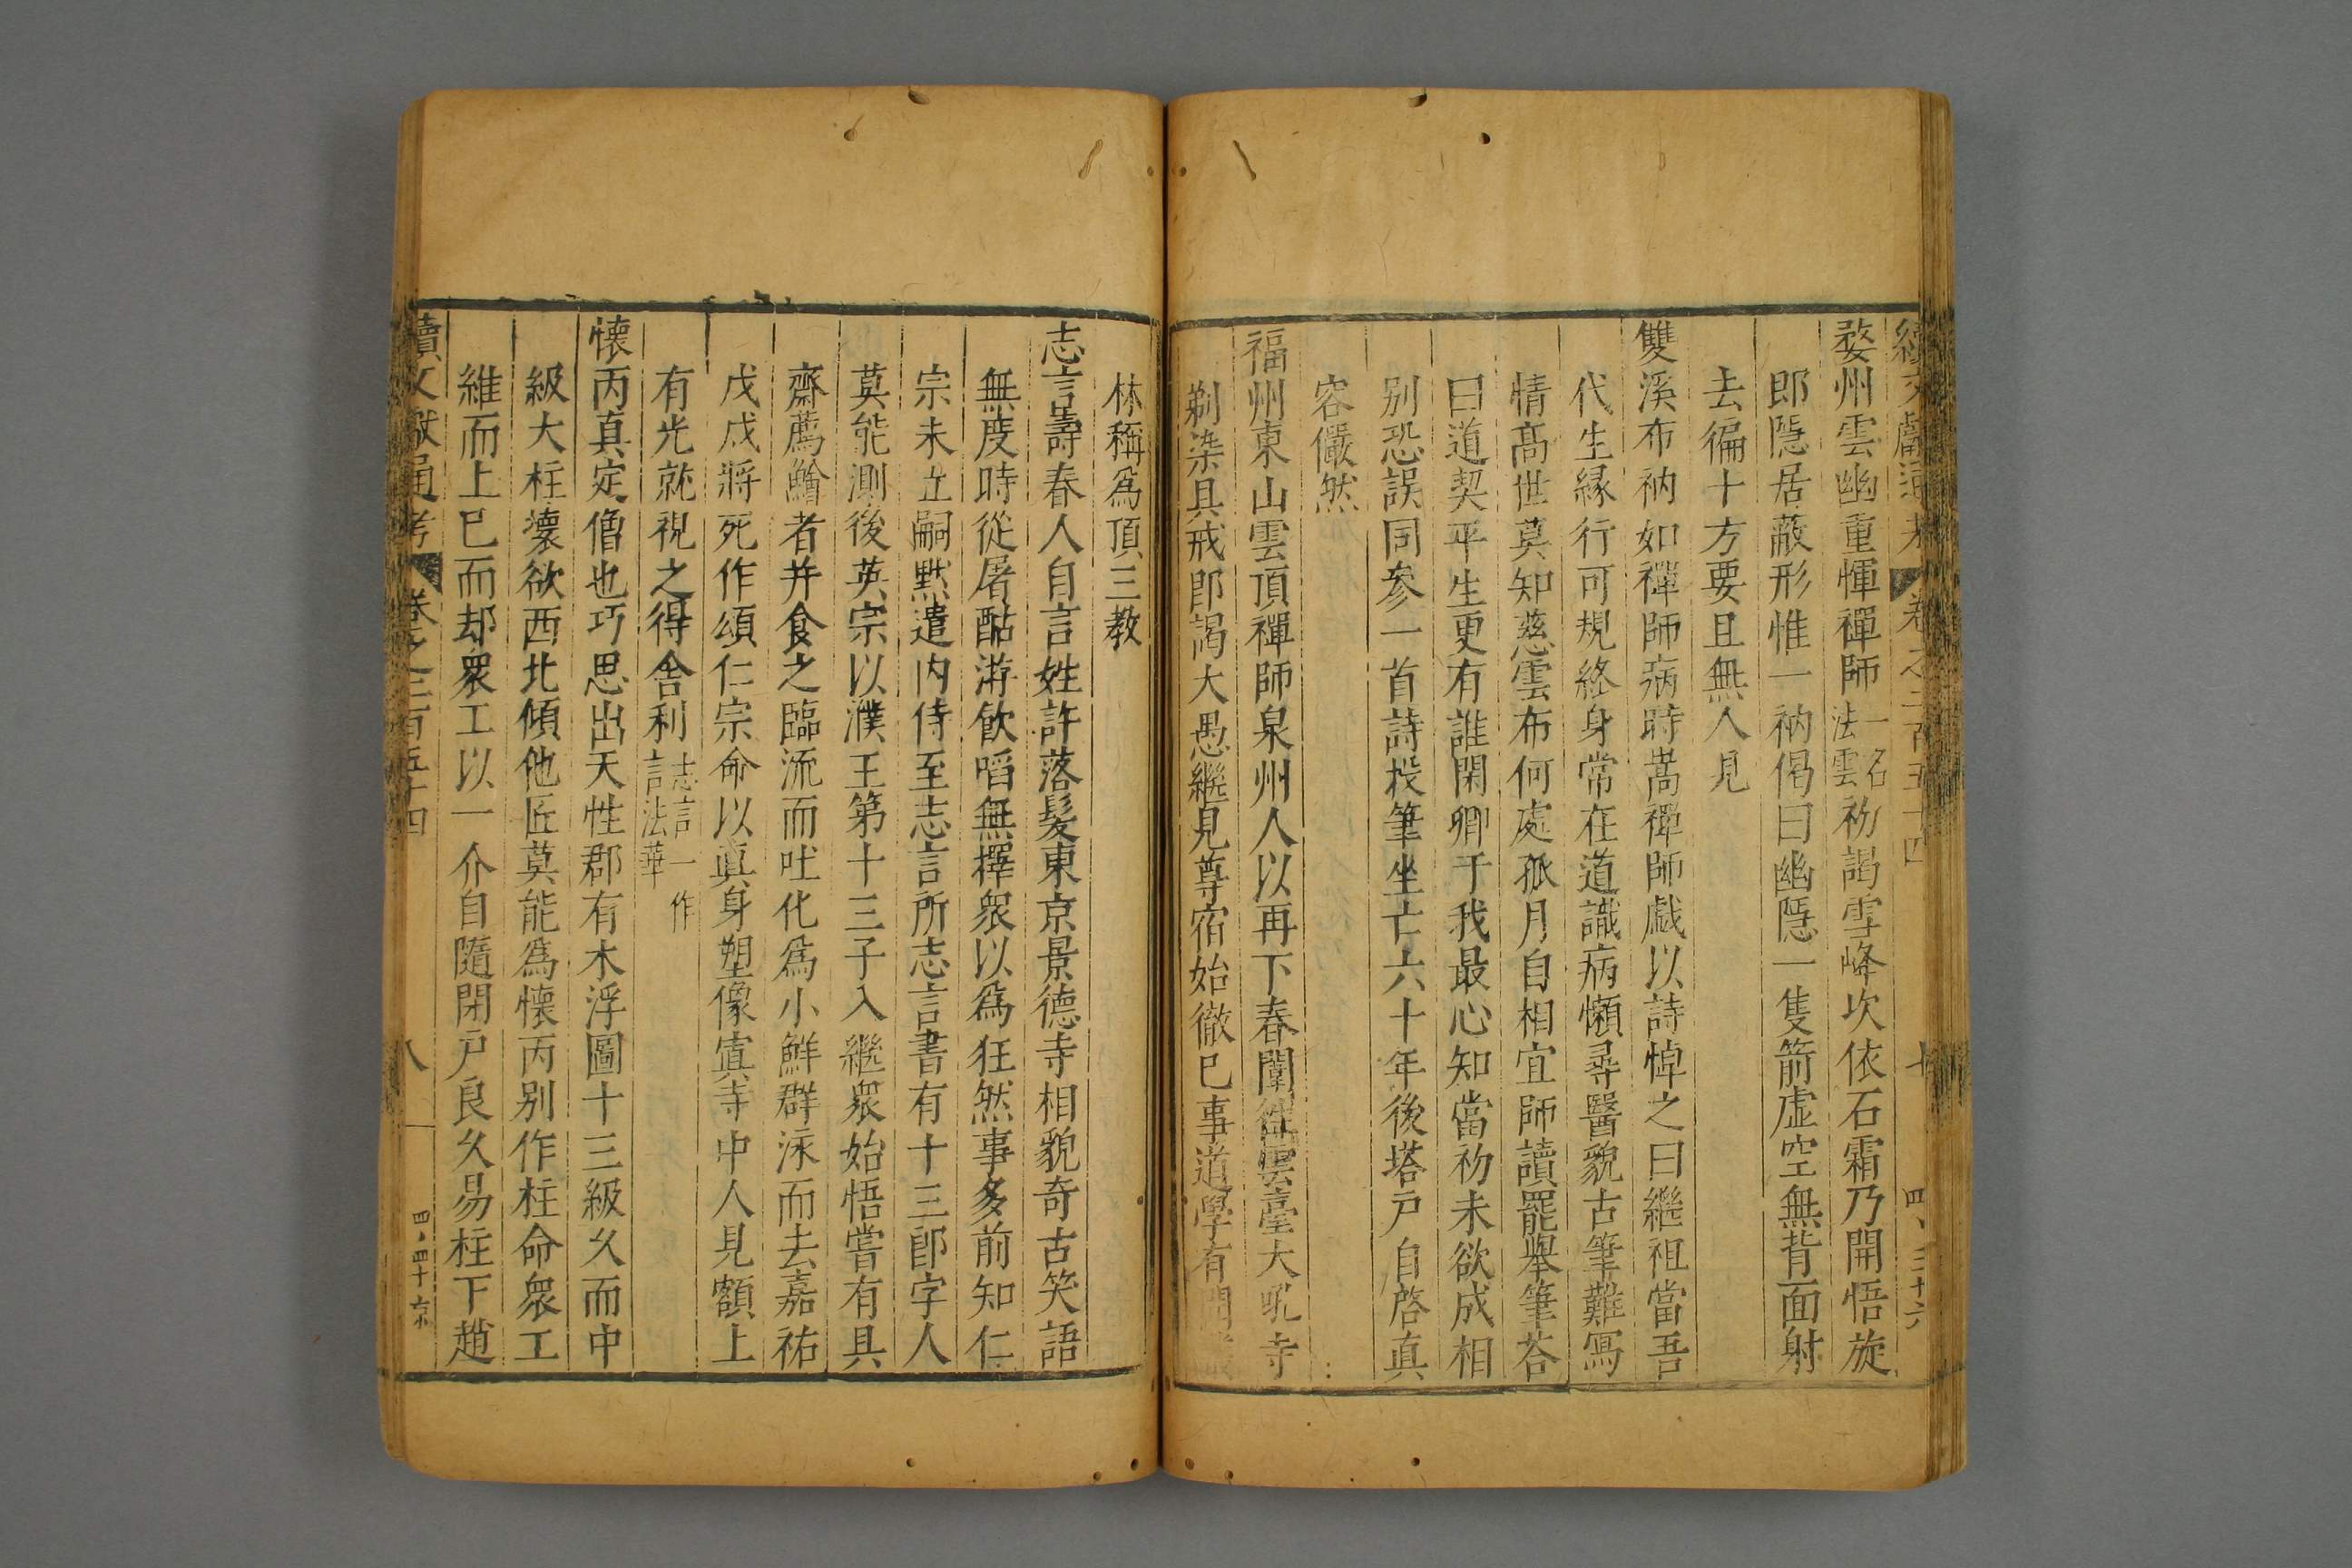 續文獻通考 卷之二百五十四 七 四、三十六
婺州雲幽重惲禪師一名法雲初謁雪峰次依石霜乃開悟旋
郎隱居蔽形惟一衲偈曰幽隱一隻箭虛空無背面射
去徧十方要且無人見
雙溪布衲如禪師病時嵩禪師戲以詩悼之曰繼祖當吾
代生緣行可規終身常在道識病懶尋醫貌古筆難寫
情高世莫知慈雲布何處孤月自相宜師讀罷舉筆荅
曰道契平生更有誰閑卿于我最心知當初未欲成相
别恐誤同參一首詩投筆坐亡六十年後塔戸自啓真
容儼然
福州東山雲頂禪師泉州人以再下春闈往雲臺大吼寺
剃染具戒郎謁大愚繼見尊宿始徹巳事道學有聞
林稱爲頂三教
志言壽春人自言姓許落髮東京景德寺相貌奇古笑語
無度時從屠酤游飲啗無擇衆以爲狂然事多前知仁
宗未立嗣默遣内侍至志言所志言書有十三郎字人
莫能測後英宗以濮王第十三子入繼衆始悟嘗有具
齋薦鱠者并食之臨流而吐化爲小鮮群泳而去嘉祐
戊戌將死作頌仁宗命以真身塑像寘寺中人見額上
有光就視之得舍利志言一作言法華
懷丙真定僧也巧思出天性郡有木浮圖十三級久而中
級大柱壞欲西北傾他匠莫能爲懷丙别作柱命衆工
維而上巳而却衆工以一介自隨閉戸良久易柱下趙
續文獻通考 卷之二百五十四 八 四、四十 京